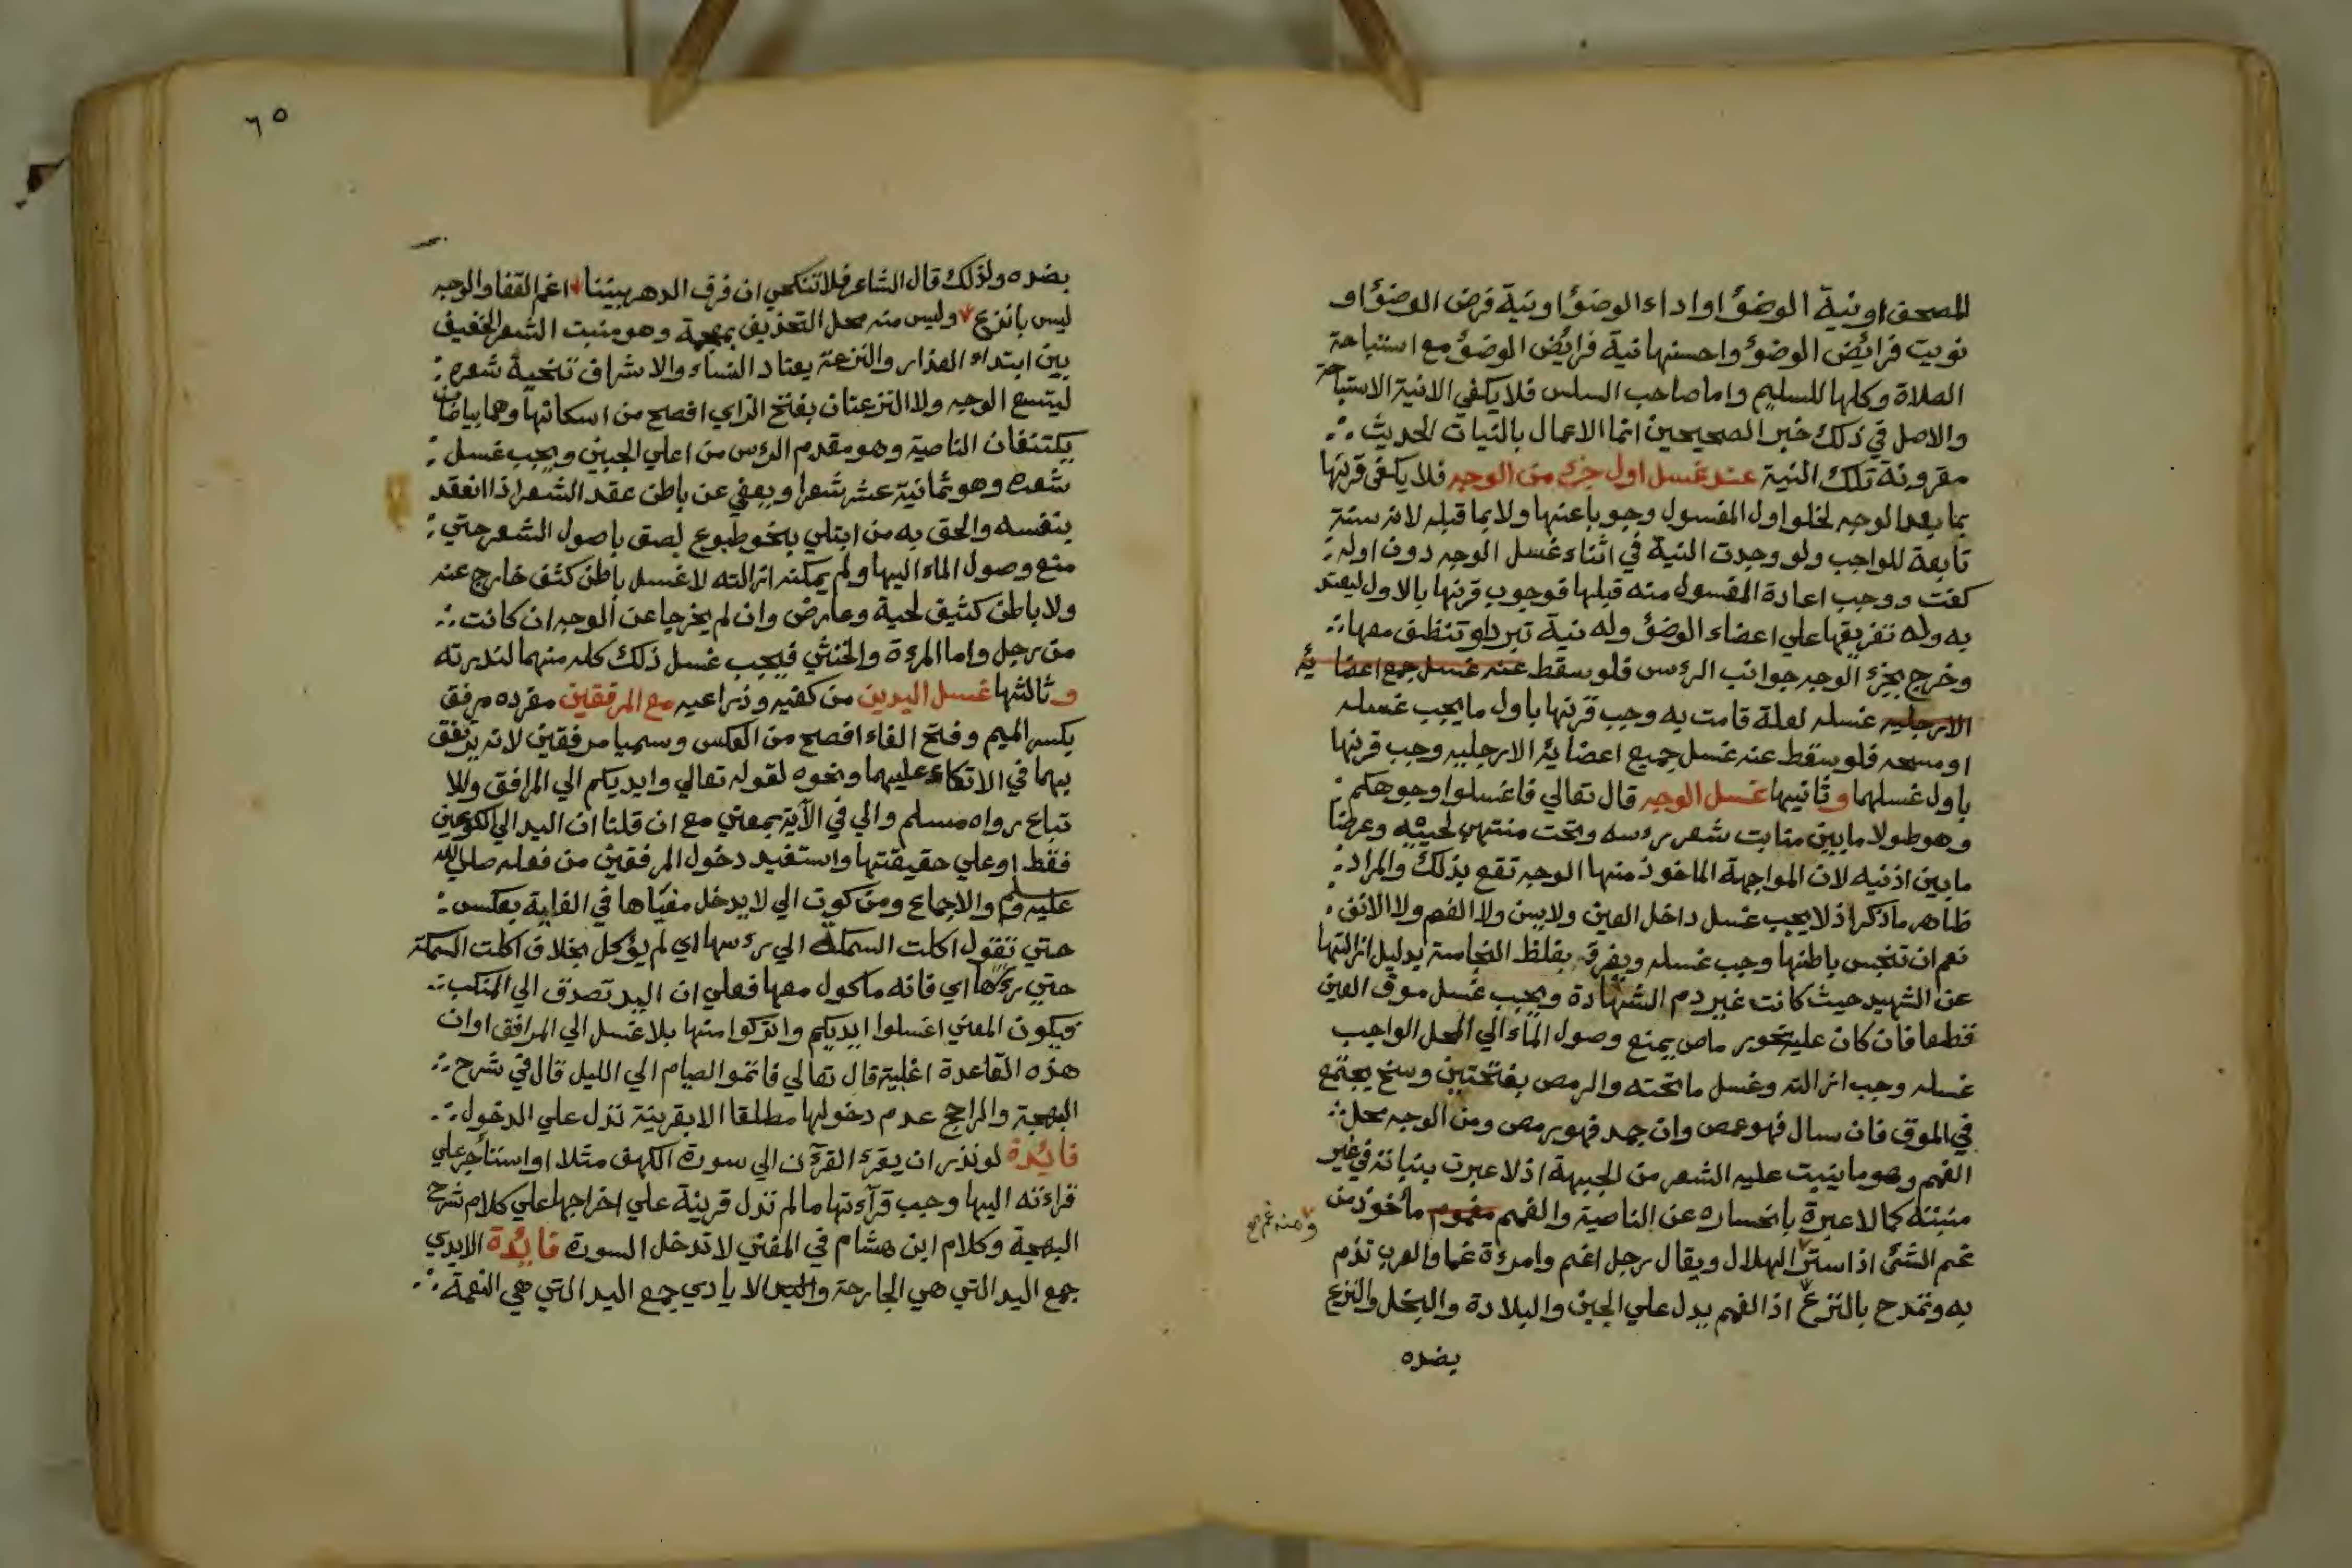 المصحف او نية الوضؤ او اداء الوضؤ او نية فرض الوضؤ او
نويت فرائض الوضؤ واحسنها نية فرائض الوضؤ مع استباحة
الصلاة وكلها للسليم واما صاحب السلس فلا يكفي الا نية الاستباحة
والاصل في ذلك خبر الصحيحين انما الاعمال بالنيات الحديث
مقرونة تلك النية عند غسل اول جزء من الوجه فلا يكفى قرنها
بما بعد الوجه لخلو اول المغسول وجوبا عنها ولا بما قبله لانه سنة
تابعة للواجب ولو وجدت النية في اثناء غسل الوجه دون اوله
كفت ووجب اعادة المغسول منه قبلها فوجوب قرنها بالاول ليعتد
به وله تفريقها علي اعضاء الوضؤ وله نية تبرد او تنظف معها
وخرج بجزء الوجه جوانب الرءس فلو سقط عنه غسل جمع اعضايه
الارجليه غسله لعلة قامت به وجب قرنها باول ما يجب غسله
او مسحه فلو سقط عنه غسل جميع اعضايه الارجليه وجب قرنها
باول غسلهما وثانيها غسل الوجه قال تعالي فاغسلوا وجوهكم
وهو طولا ما بين منابت شعر رءسه وتحت منتهي لحييه وعرضا
ما بين اذنيه لان المواجهة الماخوذ منها الوجه تقع بذلك والمراد
ظاهر ما ذكر اذ لا يجب غسل داخل العين ولا يسن ولا الفم ولا الانف
نعم ان تنجس باطنها وجب غسله ويفرق بغلظ النجاسة بدليل ازالتها
عن الشهيد حيث كانت غير دم الشهادة ويجب غسل موق العين
قطعا فان كان عليه نحو رماص يمنع وصول الماء الي المحل الواجب
غسله وجب ازالته وغسل ما تحته والرمص بفتحتين وسخ يجتمع
في الموق فان سال فهو غمص وان جمد فهو رمص ومن الوجه محل
الغمم وهو ما ينبت عليه الشعر من الجبهة اذ لا عبرت بنباته في غير
منبته كما لا عبرة بانحساره عن الناصية والغمم مغموم مأخوذ من
ومنه غم صح
غم الشئ اذا ستر الهلال ويقال رجل اغم وامرءة غما والعرب تذم
به وتمدح بالنزع اذ الغمم يدل علي الجبن والبلادة والبخل والنزع
بضده
٦٥
بضده ولذلك قال الشاعر فلا تنكحي ان فرق الدهر بيننا اغم القفا والوجه
ليس بانزع وليس منه محل التحذيف بمعجمة وهو منبت الشعر الخفيف
بين ابتداء العذار والنزعة يعتاد النساء والاشراف تنحية شعره
ليتسع الوجه ولا النزعتان بفتح الزاي افصح من اسكانها وهما بياضان
يكتنفان الناصية وهو مقدم الرءس من اعلي الجبين ويجب غسل
شعره وهو ثمانية عشر شعرا ويعفي عن باطن عقد الشعر اذا انعقد
بنفسه والحق به من ابتلي بنحو طبوع لصق باصول الشعر حتي
منع وصول الماء اليها ولم يمكنه ازالته لا غسل باطن كثف خارج عنه
ولا باطن كثيف لحية وعارض وان لم يخرجا عن الوجه ان كانت
من رجل واما المرءة والخنثي فيجب غسل ذلك كله منهما لندرته
وثالثها غسل اليدين من كفيه وذراعيه مع المرفقين مفرده مرفق
بكسر الميم وفتح الفاء افصح من العكس وسميا مرفقين لانه يرتفق
بهما في الاتكاء عليهما ونحوه لقوله تعالي وايديكم الي المرافق وللا
تباع رواه مسلم والي في الآية بمعني مع ان قلنا ان اليد الي الكوعين
فقط او علي حقيقتها واستفيد دخول المرفقين من فعله صلي الله
عليه وسلم والاجماع ومن كون الي لا يدخل مغياها في الغاية بعكس
حتي تقول اكلت السمكة الي رءسها اي لم يؤكل بخلاف اكلت السمكة
حتي رءسها اي فانه ماكول معها فعلي ان اليد تصدق الي المنكب
فيكون المعني اغسلوا ايديكم واتركوا منها بلا غسل الي المرافق او ان
هذه القاعدة اغلبية قال تعالي فاتموا الصيام الي الليل قال في شرح
البهجة والراجح عدم دخولها مطلقا الا بقرينة تدل علي الدخول
فائدة لو نذر ان يقرء القرءن الي سورة الكهف مثلا او استأجر علي
قراءته اليها وجب قرآءتها ما لم تدل قرينة علي اخراجها علي كلام شرح
البهجة وكلام ابن هشام في المغني لا تدخل السورة فائدة الايدي
جمع اليد التي هي الجارحة واليد الايادي جمع اليد التي هي النعمة